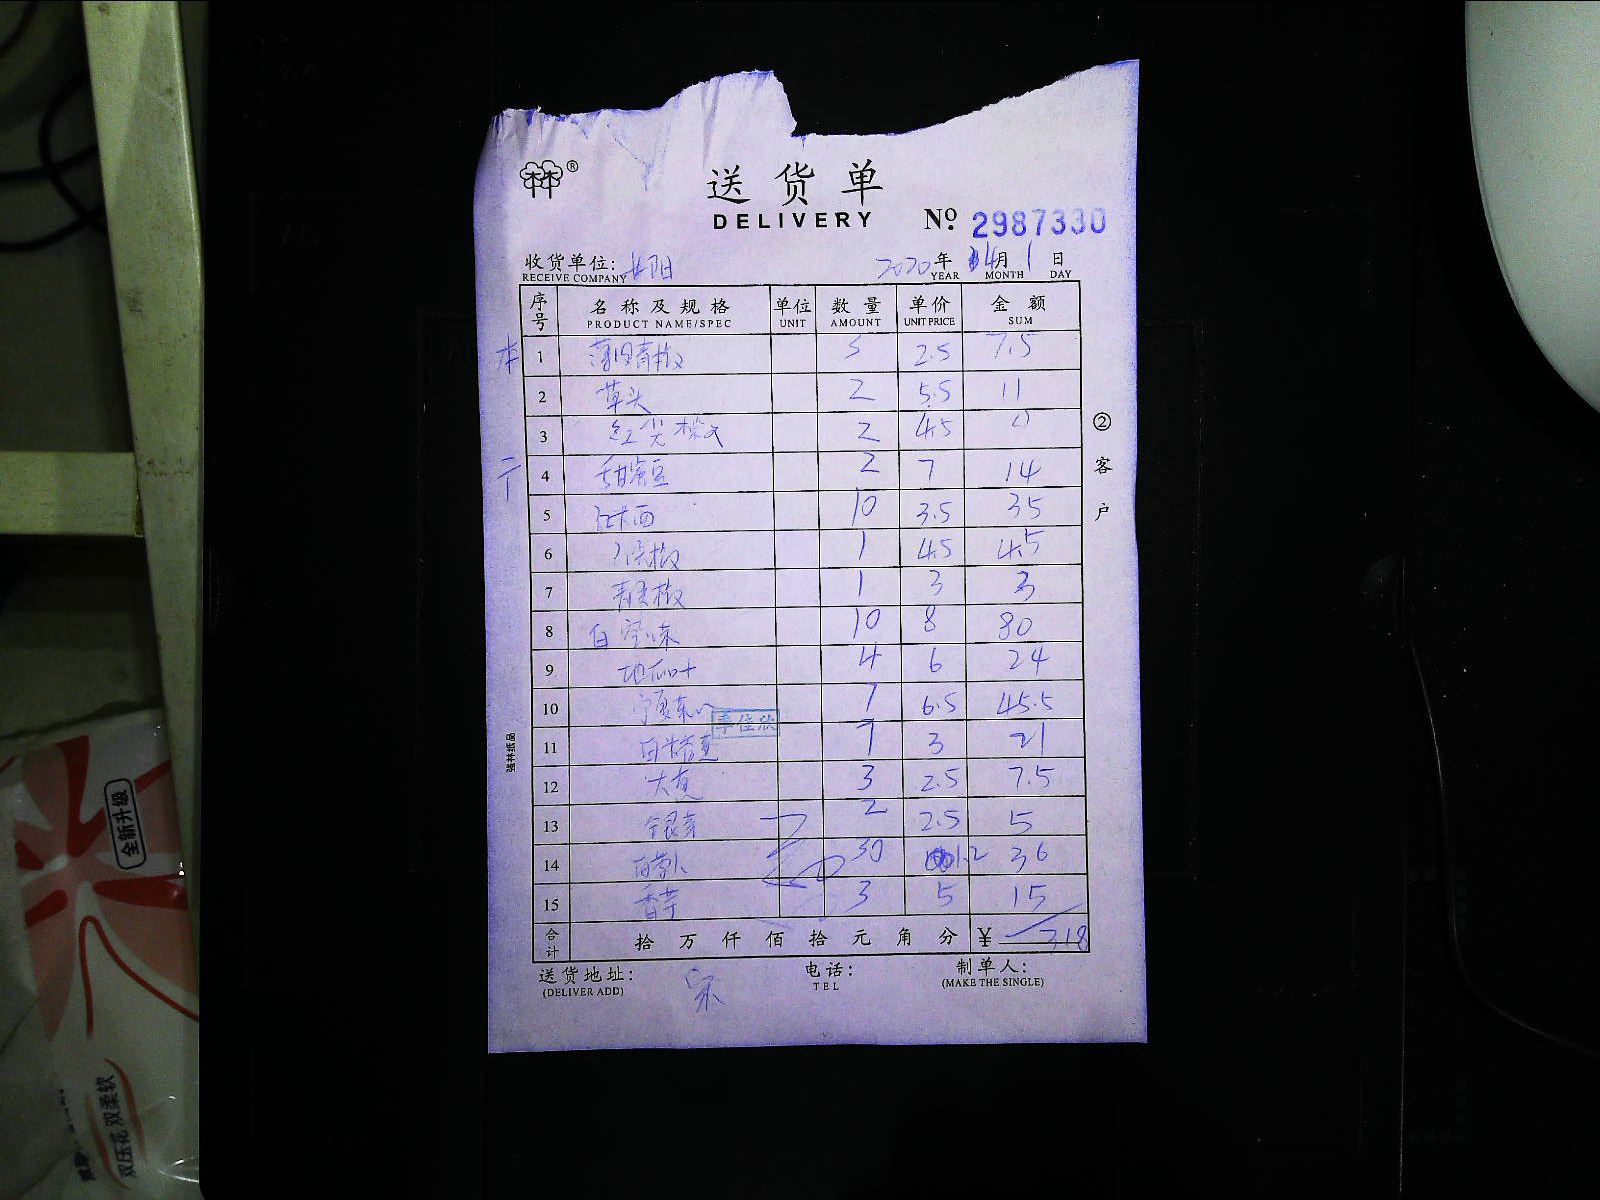 ®
送货单
DELIVERY
№ 2987330
收货单位:
2020年 4月 1日
RECEIVE COMPANY YEAR MONTH DAY
序号 名称及规格 单位 数量 单价 金额
PRODUCT NAME/SPEC UNIT AMOUNT UNIT PRICE SUM
本 1 薄皮青椒 3 2.5 7.5
2 草头 2 5.5 11
3 红尖椒 2 4.5
二 4 甜蜜豆 2 7 14
5 10 3.5 35
6 尖椒 1 4.5 4.5
7 青美椒 1 3 3
8 白 10 8 80
9 地瓜叶 4 6 24
10 宁夏菜心 7 6.5 45.5
11 7 3 21
12 大 3 2.5 7.5
13 银芽 2 2.5 5
14 白萝卜 30 1.2 36
15 香芋 3 5 15
合计 拾万仟佰拾元角分 ¥ 318
送货地址: 宋 电话: 制单人:
(DELIVER ADD) TEL (MAKE THE SINGLE)
②客户
强林纸品
全新升级
双压花 双柔软